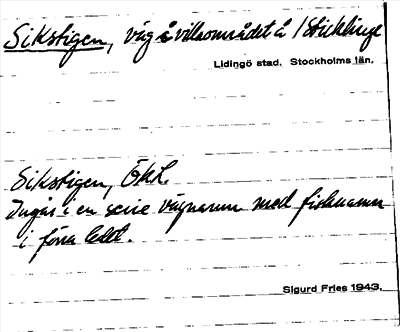 Sikstigen, väg å villaområdet å Sticklinge
Lidingö stad. Stockholms län.
Sikstigen, ÖKL.
Ingår i en serie vägnamn med fisknamn
i förra ledet.
Sigurd Fries 1943.